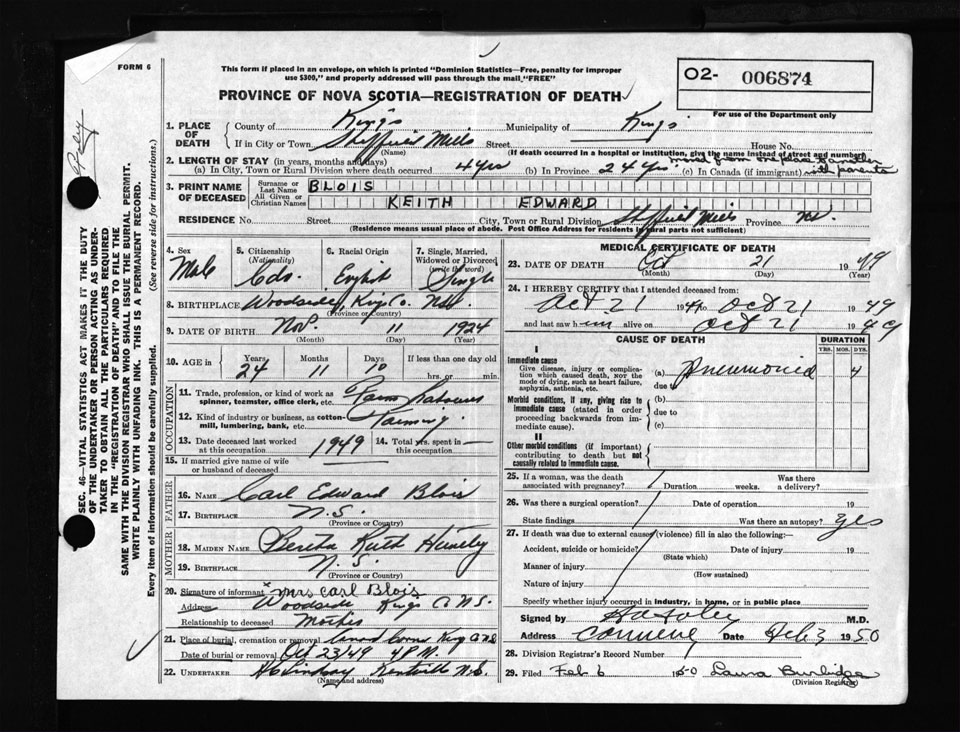 FORM 6
This form if placed in an envelope, on which is printed "Dominion Statistics—Free, penalty for improper
use $300," and properly addressed will pass through the mail "FREE"
O2- 006874
For use of the Department only
PROVINCE OF NOVA SCOTIA—REGISTRATION OF DEATH
1. PLACE OF DEATH County of Kings Municipality of Kings
If in City or Town Sheffield Mills Street House No.
(Name) (If death occurred in a hospital or institution, give the name instead of street and number)
2. LENGTH OF STAY (in years, months and days)
(a) In City, Town or Rural Division where death occurred 4 yrs (b) In Province 24 yrs (c) In Canada (if immigrant) with parents
3. PRINT NAME OF DECEASED Surname or Last Name BLOIS
All Given or Christian Names KEITH EDWARD
RESIDENCE No. Street City, Town or Rural Division Sheffield Mills Province N.S.
(Residence means usual place of abode. Post Office Address not sufficient for residents in rural parts not sufficient)
4. Sex Male
5. Citizenship (Nationality) Cdn.
6. Racial Origin English
7. Single, Married, Widowed or Divorced (write the word) Single
8. BIRTHPLACE Woodside, Kings Co. N.S.
(Province or Country)
9. DATE OF BIRTH Nov. 11 1924
(Month) (Day) (Year)
10. AGE in Years 24 Months 11 Days 10 If less than one day old hrs. or min.
OCCUPATION
11. Trade, profession, or kind of work as spinner, teamster, office clerk, etc. Farm Labourer
12. Kind of industry or business, as cotton-mill, lumbering, bank, etc. Farming
13. Date deceased last worked at this occupation 1949 14. Total yrs. spent in this occupation
15. If married give name of wife or husband of deceased
FATHER
16. NAME Carl Edward Blois
17. BIRTHPLACE N.S.
(Province or Country)
MOTHER
18. MAIDEN NAME Bertha Ruth
19. BIRTHPLACE N.S.
(Province or Country)
20. Signature of informant x Mrs Carl Blois
Address Woodside Kings Co N.S.
Relationship to deceased Mother
21. Place of burial, cremation or removal Corner Kings Co N.S.
Date of burial or removal Oct 23/49 4 P.M.
22. UNDERTAKER Lindsay Kentville N.S.
(Name and address)
MEDICAL CERTIFICATE OF DEATH
23. DATE OF DEATH Oct 21 1949
(Month) (Day) (Year)
24. I HEREBY CERTIFY that I attended deceased from:
Oct 21 19 49 to Oct 21 19 49
and last saw h im alive on Oct 21 19 49
CAUSE OF DEATH
DURATION
YRS. MOS. DYS.
I
Immediate cause
Give disease, injury or complication which caused death, not the mode of dying, such as heart failure, asphyxia, asthenia, etc.
(a) Pneumonia 4
due to
Morbid conditions, if any, giving rise to immediate cause (stated in order proceeding backwards from immediate cause).
(b)
due to
(c)
II
Other morbid conditions (if important) contributing to death but not causally related to immediate cause.
25. If a woman, was the death associated with pregnancy? Duration weeks. Was there a delivery?
26. Was there a surgical operation? Date of operation 19
State findings Was there an autopsy? Yes
27. If death was due to external causes (violence) fill in also the following:—
Accident, suicide or homicide? Date of injury 19
(State which)
Manner of injury
(How sustained)
Nature of injury
Specify whether injury occurred in industry, in home, or in public place
Signed by Foley M.D.
Address Canning Date Feb 3 1950
28. Division Registrar's Record Number
29. Filed Feb 6 1950 Laura Burbidge
(Division Registrar)
SEC. 46—VITAL STATISTICS ACT MAKES IT THE DUTY
OF THE UNDERTAKER OR PERSON ACTING AS UNDER-
TAKER TO OBTAIN ALL THE PARTICULARS REQUIRED
IN THE "REGISTRATION OF DEATH" AND TO FILE THE
SAME WITH THE DIVISION REGISTRAR WHO SHALL ISSUE THE BURIAL PERMIT.
WRITE PLAINLY WITH UNFADING INK. THIS IS A PERMANENT RECORD.
Every item of information should be carefully supplied. (See reverse side for instructions.)